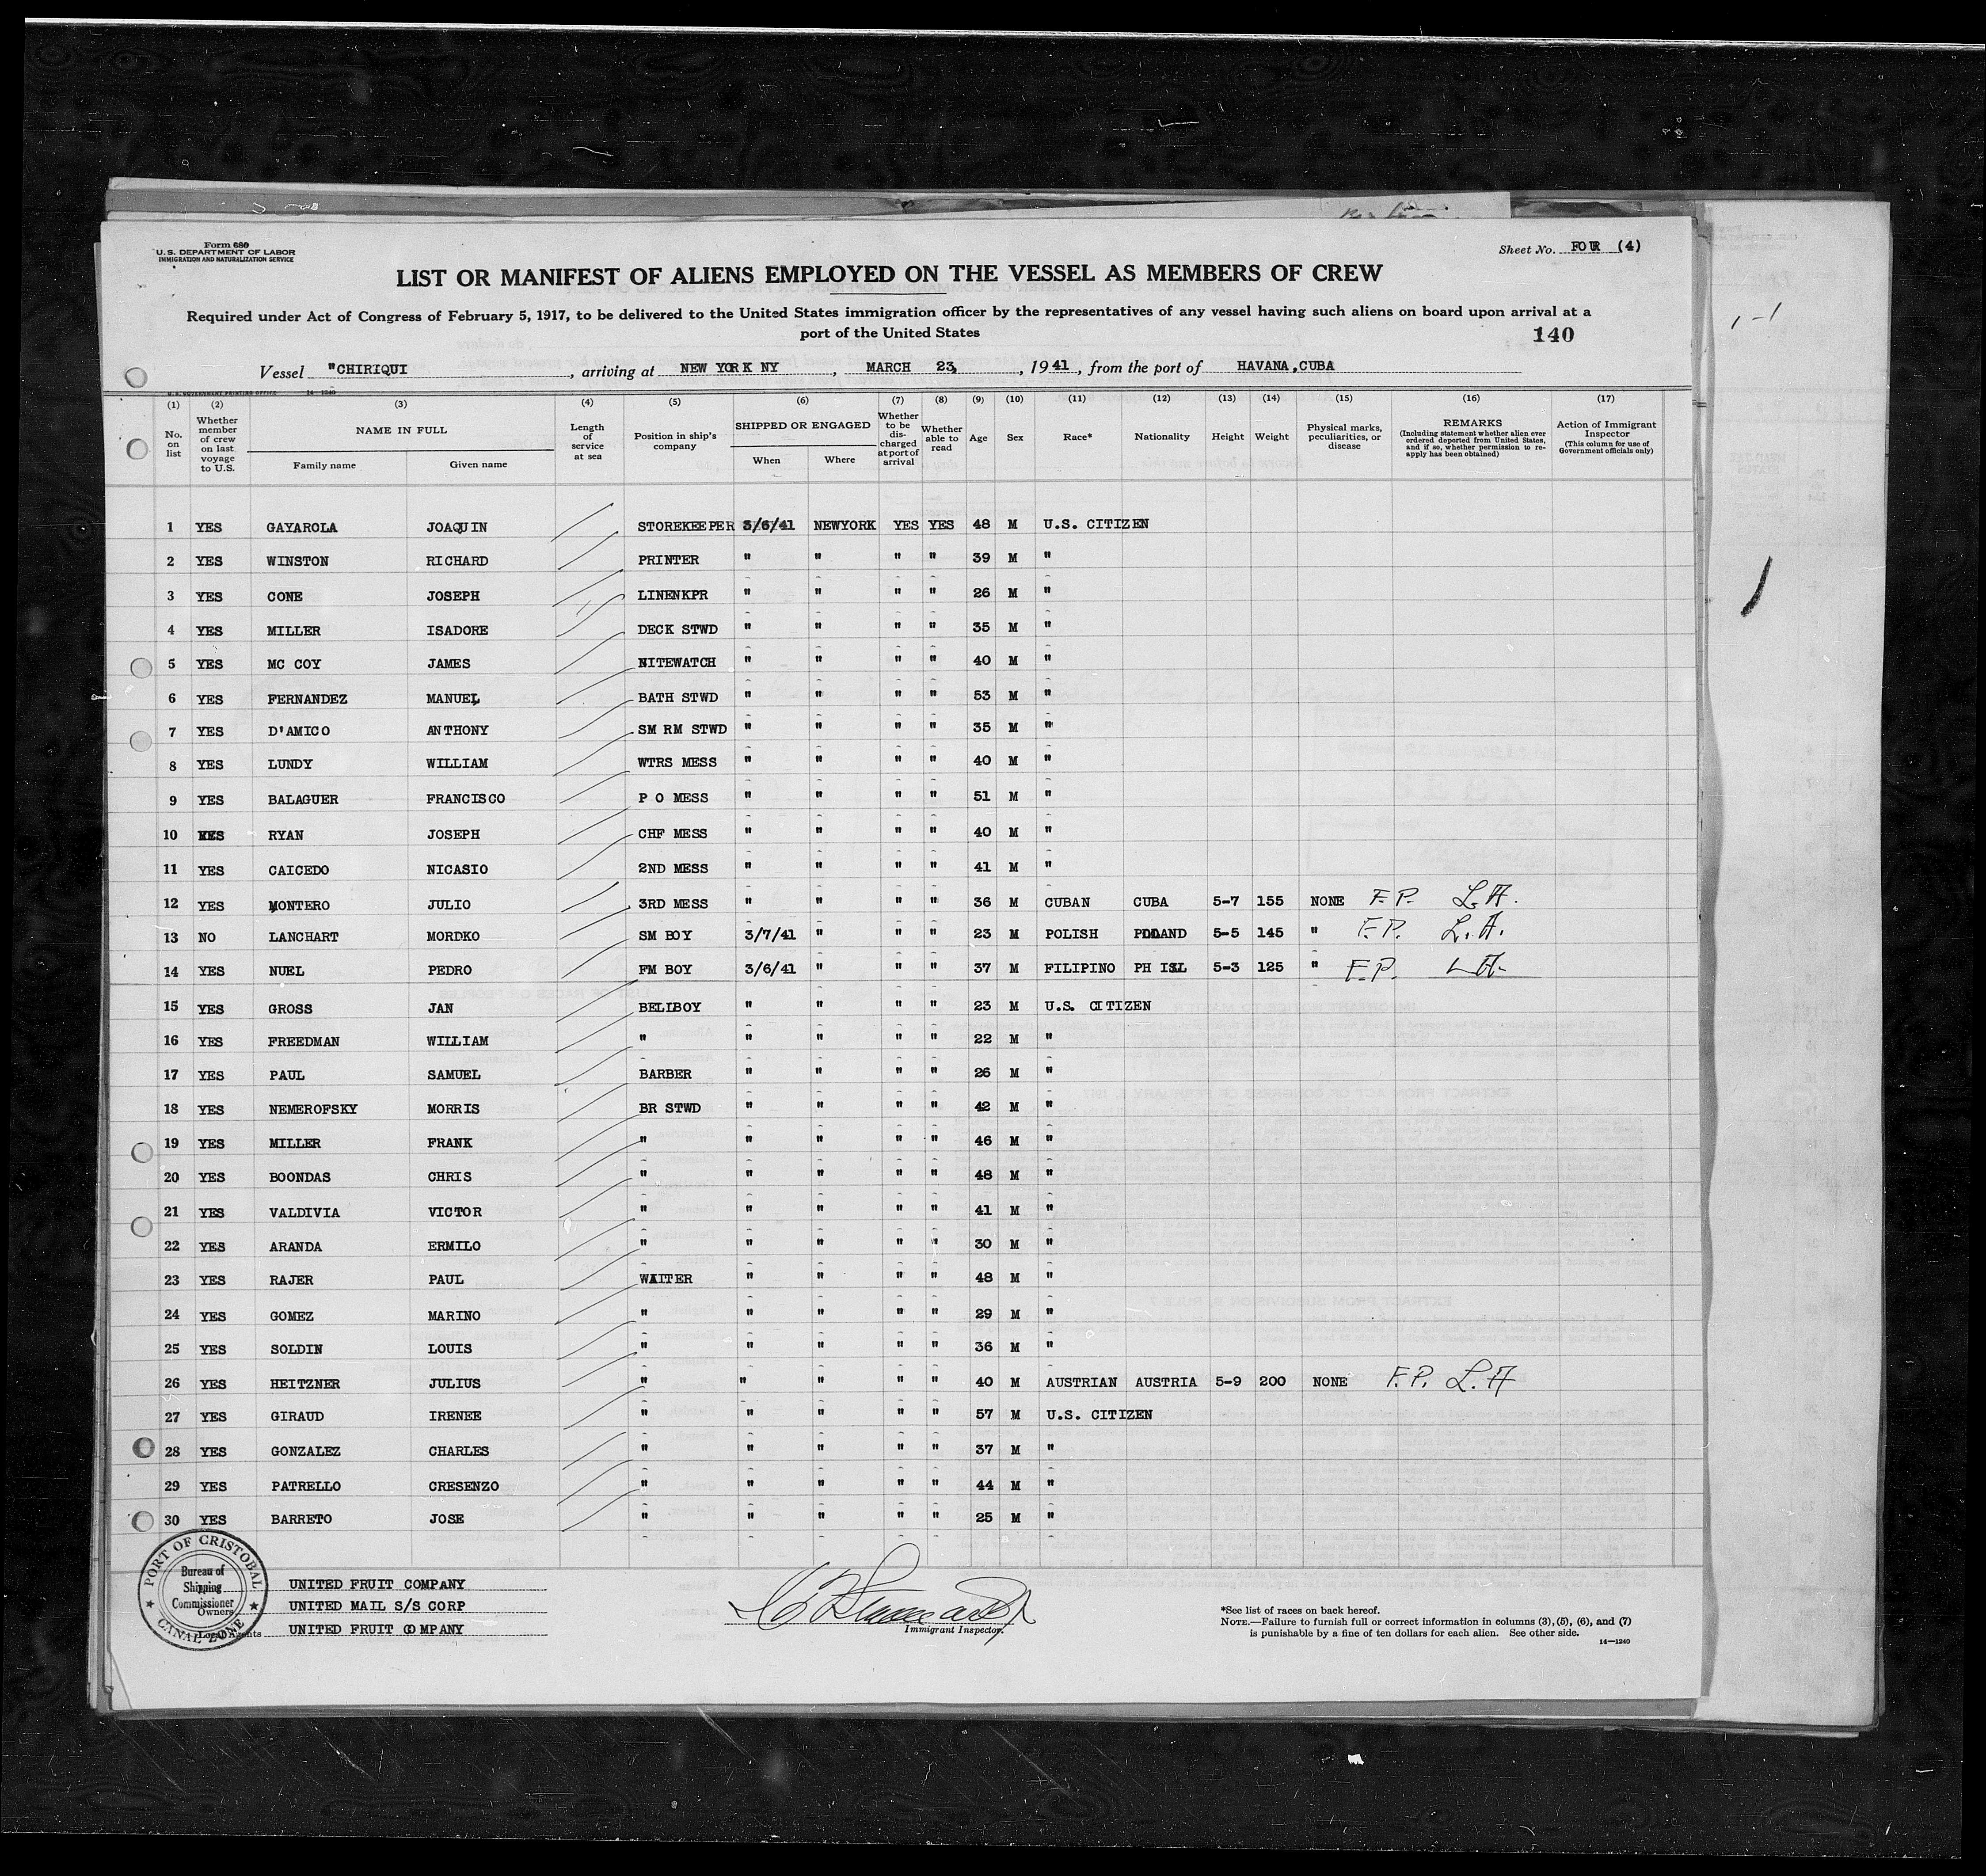 Form 680
U.S. DEPARTMENT OF LABOR
IMMIGRATION AND NATURALIZATION SERVICE
Sheet No. FOUR (4)
LIST OR MANIFEST OF ALIENS EMPLOYED ON THE VESSEL AS MEMBERS OF CREW
Required under Act of Congress of February 5, 1917, to be delivered to the United States immigration officer by the representatives of any vessel having such aliens on board upon arrival at a
port of the United States
140
Vessel "CHIRIQUI , arriving at NEW YORK NY , MARCH 23, , 1941 , from the port of HAVANA,CUBA
U. S. GOVERNMENT PRINTING OFFICE 14—1240
(1) No. on list (2) Whether member of crew on last voyage to U.S. (3) NAME IN FULL Family name Given name (4) Length of service at sea (5) Position in ship's company (6) SHIPPED OR ENGAGED When Where (7) Whether to be discharged at port of arrival (8) Whether able to read (9) Age (10) Sex (11) Race* (12) Nationality (13) Height (14) Weight (15) Physical marks, peculiarities, or disease (16) REMARKS (Including statement whether alien ever ordered deported from United States, and if so, whether permission to re-apply has been obtained) (17) Action of Immigrant Inspector (This column for use of Government officials only)
1 YES GAYAROLA JOAQUIN STOREKEEPER 3/6/41 NEWYORK YES YES 48 M U.S. CITIZEN
2 YES WINSTON RICHARD PRINTER " " " " 39 M "
3 YES CONE JOSEPH LINENKPR " " " " 26 M "
4 YES MILLER ISADORE DECK STWD " " " " 35 M "
5 YES MC COY JAMES NITEWATCH " " " " 40 M "
6 YES FERNANDEZ MANUEL BATH STWD " " " " 53 M "
7 YES D'AMICO ANTHONY SM RM STWD " " " " 35 M "
8 YES LUNDY WILLIAM WTRS MESS " " " " 40 M "
9 YES BALAGUER FRANCISCO P O MESS " " " " 51 M "
10 YES RYAN JOSEPH CHF MESS " " " " 40 M "
11 YES CAICEDO NICASIO 2ND MESS " " " " 41 M "
12 YES MONTERO JULIO 3RD MESS " " " " 36 M CUBAN CUBA 5-7 155 NONE F.P. L.A.
13 NO LANCHART MORDKO SM BOY 3/7/41 " " " 23 M POLISH POLAND 5-5 145 " F.P. L.A.
14 YES NUEL PEDRO FM BOY 3/6/41 " " " 37 M FILIPINO PH ISL 5-3 125 " F.P. L.A.
15 YES GROSS JAN BELLBOY " " " " 23 M U.S. CITIZEN
16 YES FREEDMAN WILLIAM " " " " " 22 M "
17 YES PAUL SAMUEL BARBER " " " " 26 M "
18 YES NEMEROFSKY MORRIS BR STWD " " " " 42 M "
19 YES MILLER FRANK " " " " " 46 M "
20 YES BOONDAS CHRIS " " " " " 48 M "
21 YES VALDIVIA VICTOR " " " " " 41 M "
22 YES ARANDA ERMILO " " " " " 30 M "
23 YES RAJER PAUL WAITER " " " " 48 M "
24 YES GOMEZ MARINO " " " " " 29 M "
25 YES SOLDIN LOUIS " " " " " 36 M "
26 YES HEITZNER JULIUS " " " " " 40 M AUSTRIAN AUSTRIA 5-9 200 NONE F.P. L.A
27 YES GIRAUD IRENEE " " " " " 57 M U.S. CITIZEN
28 YES GONZALEZ CHARLES " " " " " 37 M "
29 YES PATRELLO CRESENZO " " " " " 44 M "
30 YES BARRETO JOSE " " " " " 25 M "
PORT OF CRISTOBAL
Bureau of
Shipping
Commissioner
CANAL ZONE
UNITED FRUIT COMPANY
Owners UNITED MAIL S/S CORP
Local Agents UNITED FRUIT COMPANY
Immigrant Inspector.
*See list of races on back hereof.
NOTE.—Failure to furnish full or correct information in columns (3), (5), (6), and (7)
is punishable by a fine of ten dollars for each alien. See other side.
14—1240